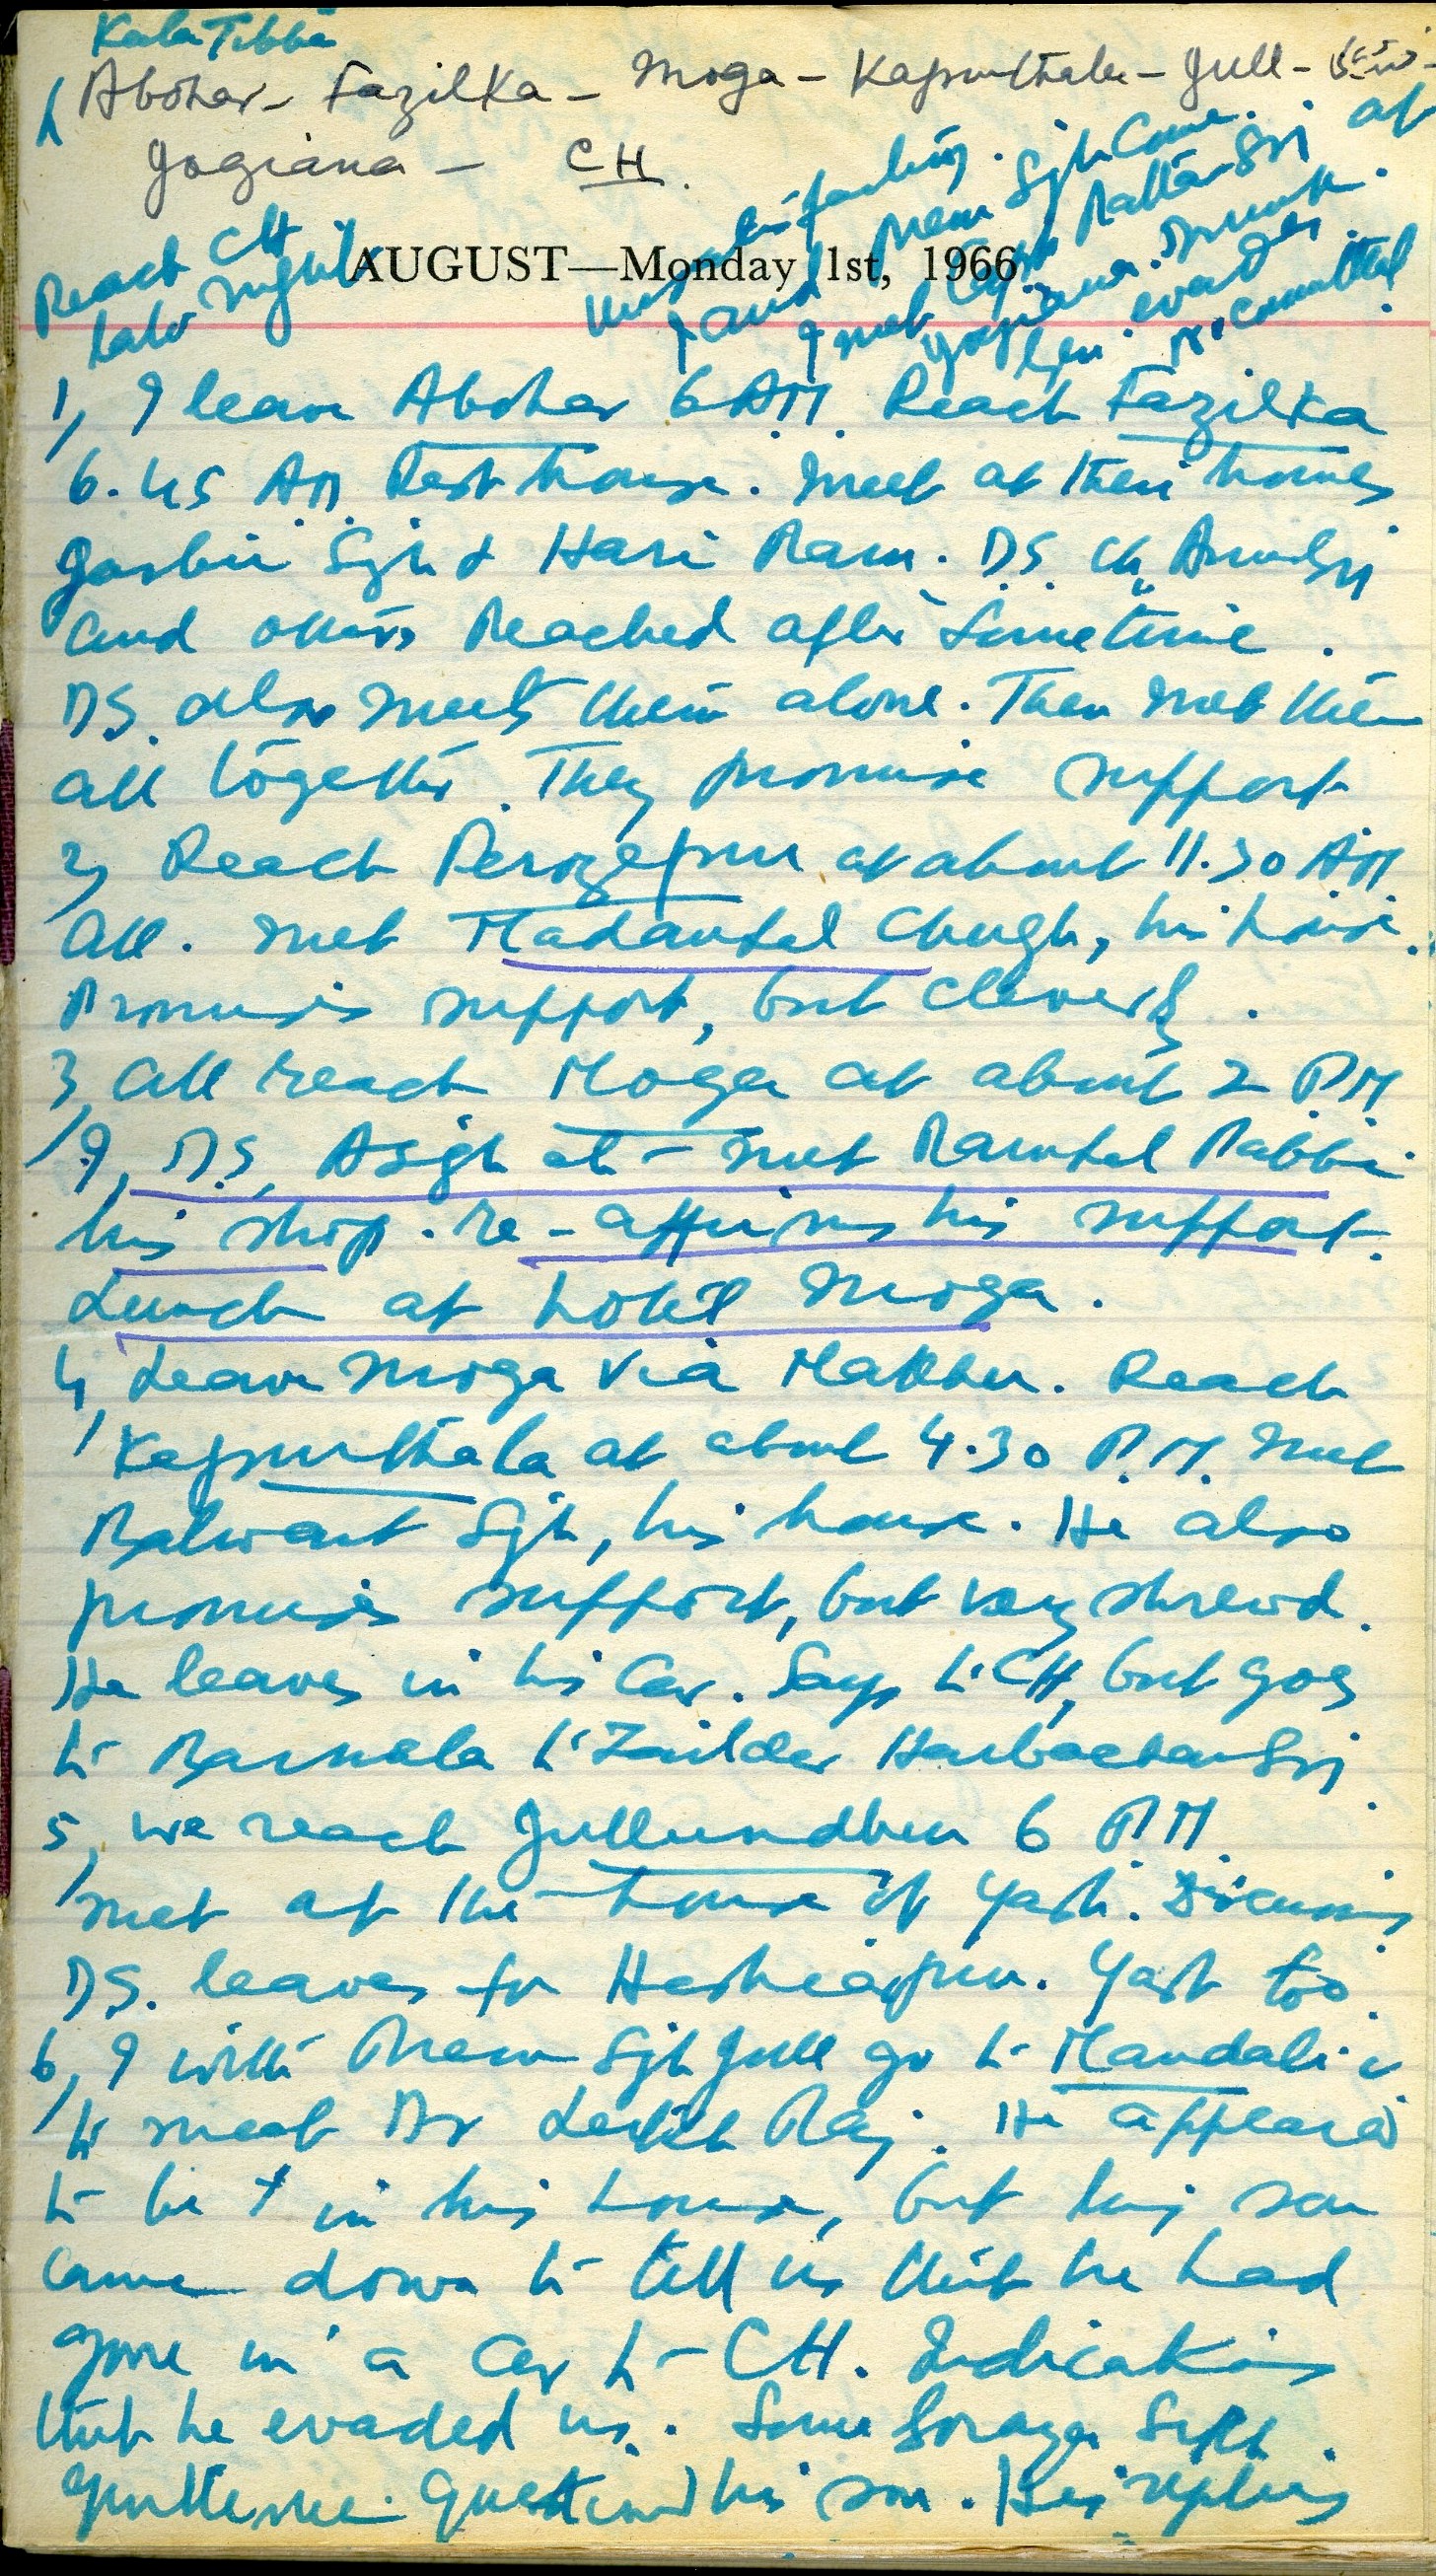 Kala Tibba
Abohar - Fazilka - Moga - Kapurthala - Jull -
Jogiana - CH.
Reach CH
late night
AUGUST—Monday 1st, 1966
and Prem Sgh Come.
I met Rattan Sgj at
Jogiana. Drunk.
evades.
committal
1, I leave Abohar 6 AM. Reach Fazilka
6.45 AM Rest house. Meet at their homes
Jasbir Sgh & Hari Ram. DS. Ch
and others reached after sometime.
DS. also meets them alone. Then met them
all together. They promise support
2, Reach Ferozepur at about 11.30 AM
All. met Madanlal Chugh, his house.
Promises support, but cleverly.
3, All reach Moga at about 2 PM
I, DS, A Sgh etc - met Ramlal Rabbi
his shop. re-affirms his support.
Lunch at hotel Moga.
4, Leave Moga via Makhu. Reach
Kapurthala at about 4.30 P.M. met
Balwant Sgh, his house. He also
promises support, but very shrewd.
He leaves in his Car. Says to CH, but goes
to Barnala to Zaildar Harbachan Sgj
5, we reach Jullundhur 6 PM.
met at the house of Yash. Discussions
DS. leaves for Hoshiarpur. Yash too.
6, I with Prem Sgh Jull go to Mandali
to meet Dr Lekh Raj. He appeared
to be in his house, but his son
came down to tell us that he had
gone in a Car to - CH. Indications
that he evaded us. Some Soraya Sikh
gentlemen questioned his son. His replies